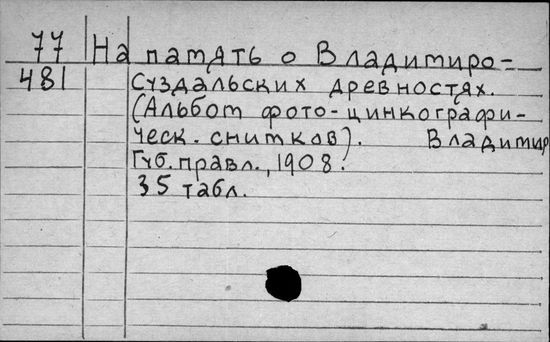 77 На память о Владимиро-
481 Суздальских древностях.
(Альбот фото-цинкографи-
ческ. снитков). Владимир
Губ. правл., 1908.
35 табл.